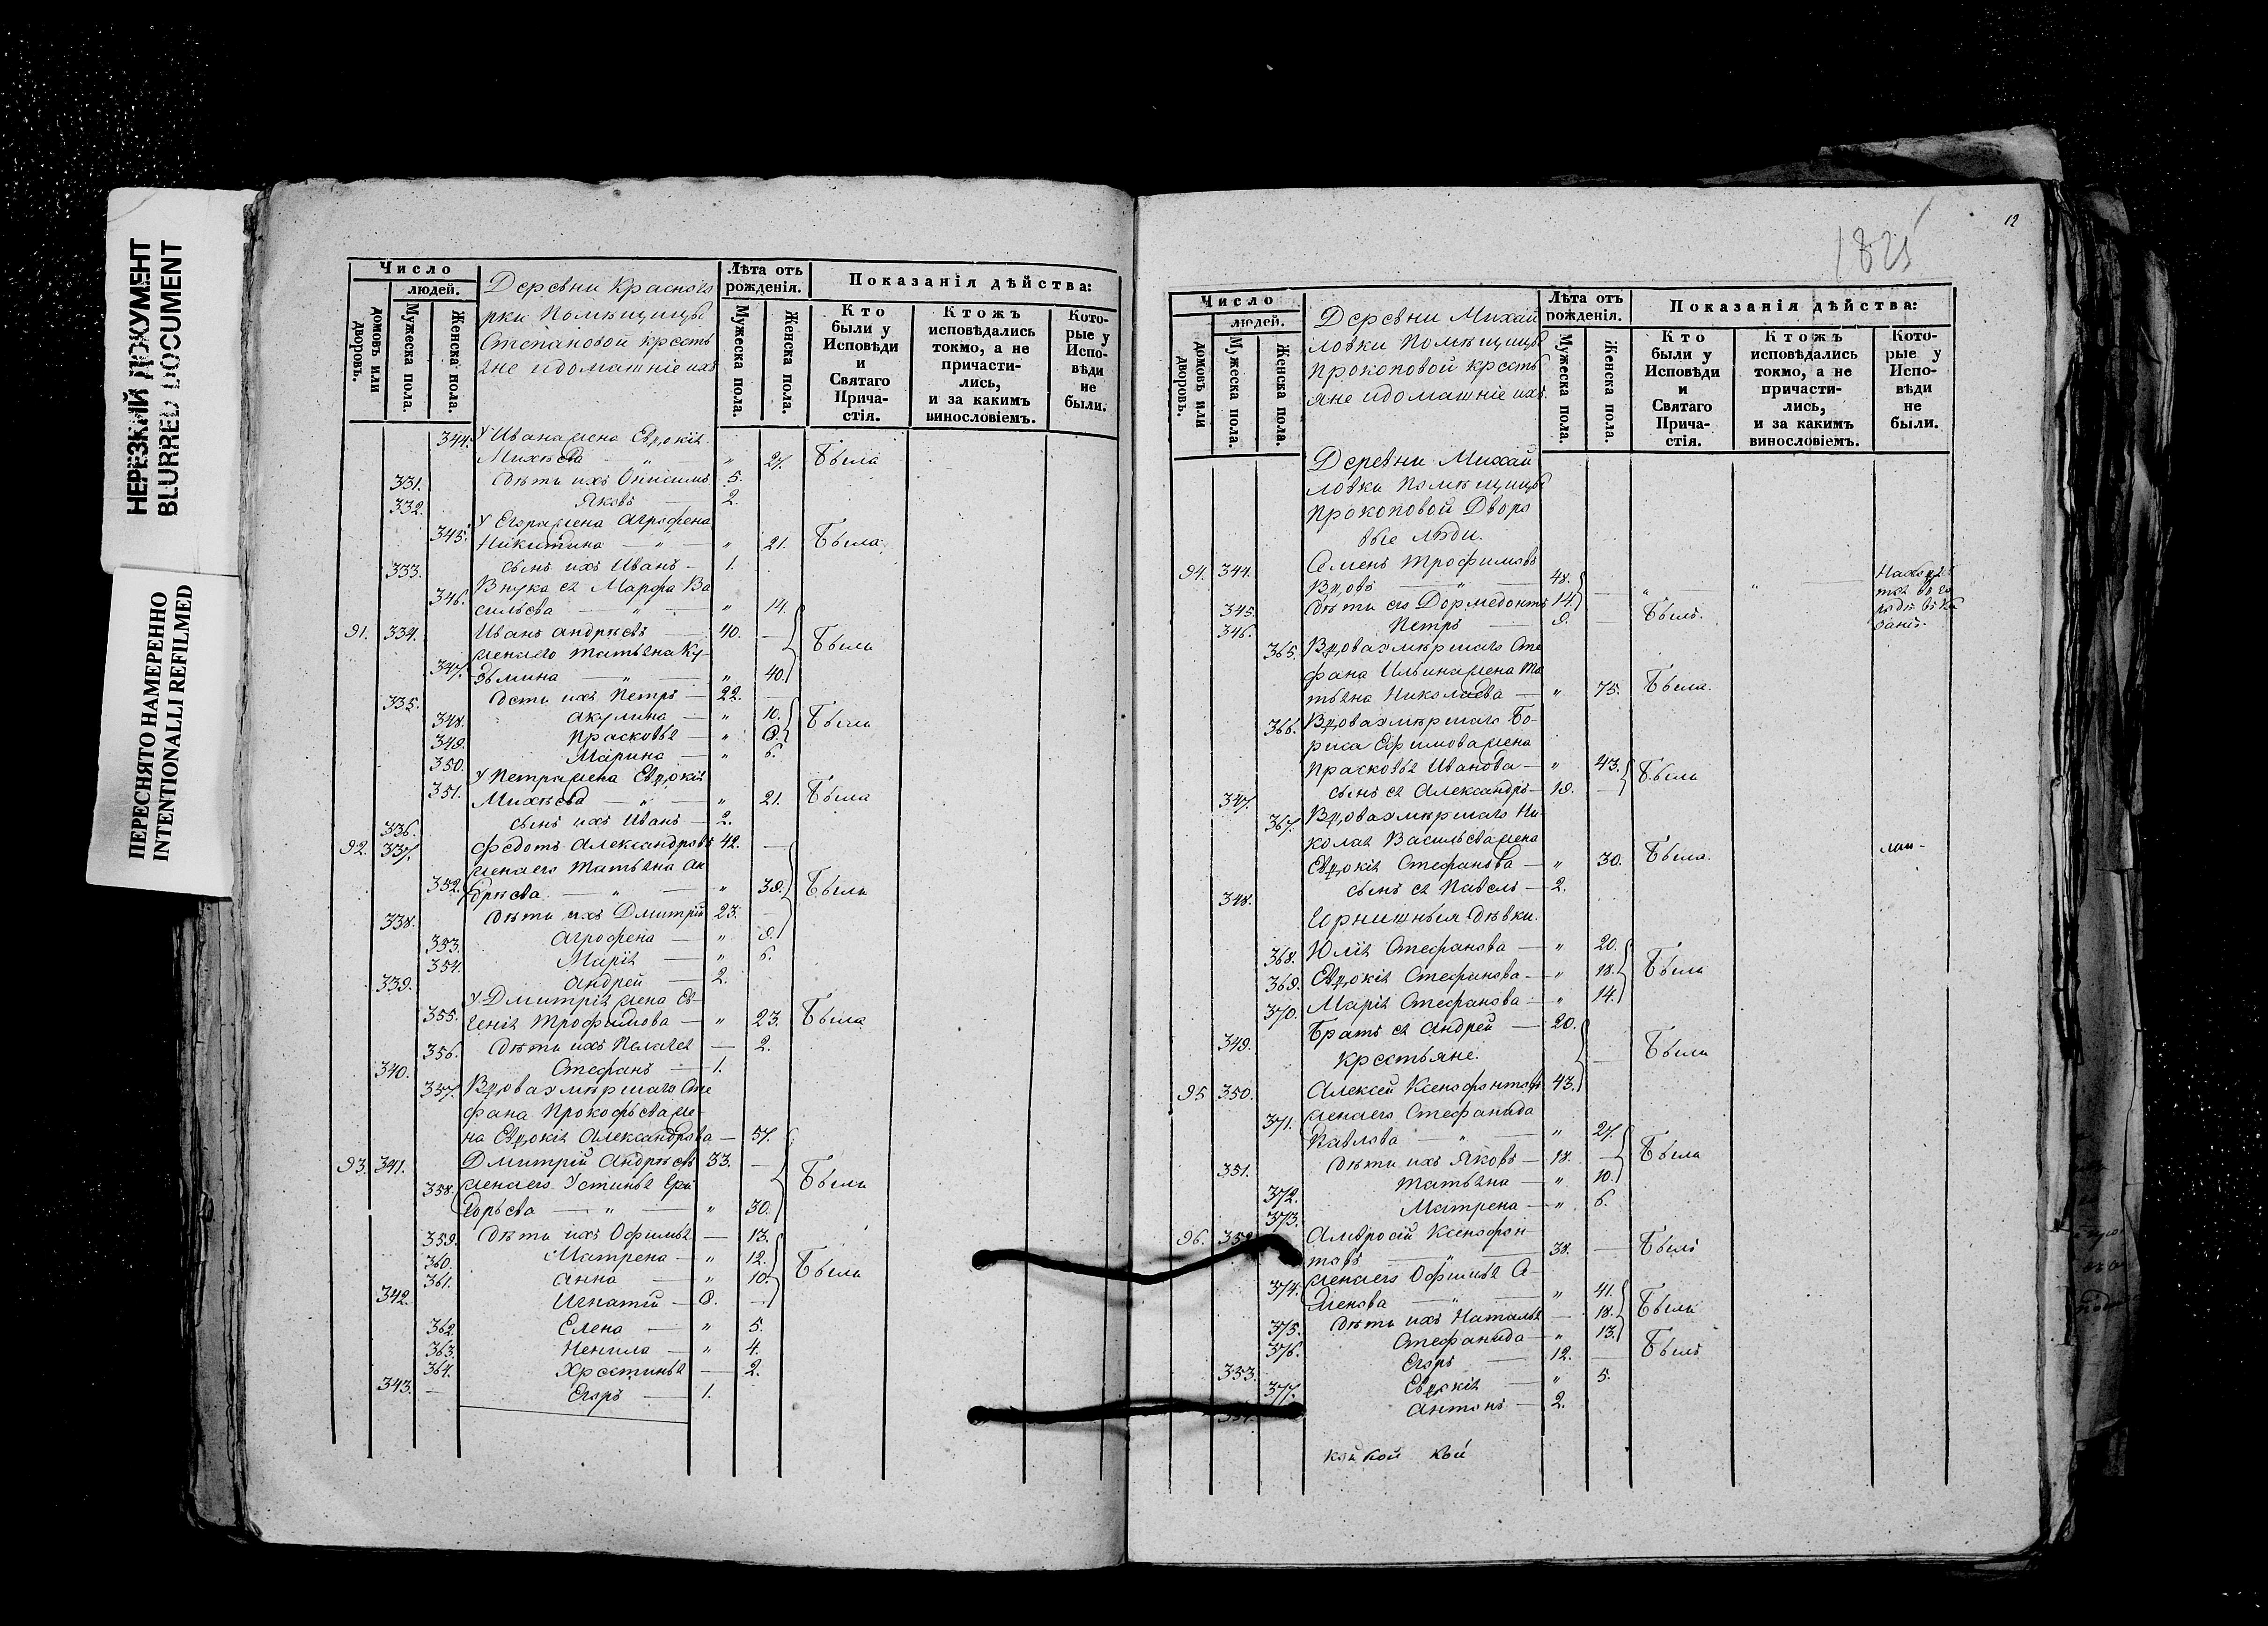 НЕРЕЗКИЙ ДОКУМЕНТ
BLURRED DOCUMENT
ПЕРЕСНЯТО НАМЕРЕННО
INTENTIONALLI REFILMED
Число
людей.
домовъ или дворовъ.
Мужеска пола.
Женска пола.
Деревни Красного
рки Помѣщицы
Степановой кресть
яне и домашніе ихъ
Лѣта отъ рожденія.
Мужеска пола.
Женска пола.
Показанія дѣйства:
Кто были у Исповѣди и Святаго Прича-стія.
Ктожъ исповѣдались токмо, а не причасти-лись, и за какимъ винословіемъ.
Кото-рые у Испо-вѣди не были.
344. У Ивана жена Евдокія
Михѣева — " — " 27. Была
331. Дѣти ихъ Онисимъ 5.
332. Яковъ — 2.
У Егора жена Агрофена
345. Никитина — " — " 21. Была
333. Сынъ ихъ Иванъ — 1.
346. Внука ея Марфа Ва
сильева — " — " 14.
91. 334. Иванъ Андреевъ — 40. — Были
жена его Татьяна Ку-
347. зьмина — " — " 40.
335. Дети ихъ Петръ — 22. —
348. Акулина — " 10. Были
349. Прасковья — " 8.
350. Марина — " 6.
У Петра жена Евдокія
351. Михѣева — " — " 21. Была
336. сынъ ихъ Иванъ — 2.
92. 337. Федотъ Александровъ 42. —
жена его Татьяна Ан
352. дрѣева — " — " 39. Были
338. Дѣти ихъ Дмитрій 23. —
353. Агрофена — " 9.
354. Марія — " 6.
339. Андрей — 2.
У Дмитрія жена Ев-
355. генія Трофимова — " 23. Была
356. Дѣти ихъ Пелагея — 2.
340. Стефанъ — 1.
357. Вдова умѣршаго Сте
фана Прокофьева же-
на Евдокія Александрова — 57.
93. 341. Дмитрій Андрѣевъ 33. — Были
358. жена его Устинья Гри
горьева — " — " 30.
359. Дѣти ихъ Офимья — 13.
360. Матрена — " 12. Были
361. Анна — " 10.
342. Игнатій — 8. —
362. Елена — " 5.
363. Ненила — " 4.
364. Хрестинья — 2.
343. — Егоръ — 1.
12
1825
Число
людей.
домовъ или дворовъ.
Мужеска пола.
Женска пола.
Деревни Михай
ловки Помѣщицы
Прокоповой кресть
яне и домашніе ихъ.
Лѣта отъ рожденія.
Мужеска пола.
Женска пола.
Показанія дѣйства:
Кто были у Исповѣди и Святаго Прича-стія.
Ктожъ исповѣдались токмо, а не причасти-лись, и за какимъ винословіемъ.
Кото-рые у Испо-вѣди не были.
Деревни Михай
ловки Помѣщицы
Прокоповой Дворо
вые люди.
94. 344. Семенъ Трофимовъ
Вдовъ — " — 48. — " — "
345. Дѣти его Дормедонтъ 14. Былъ.
346. Петръ — 9. —
365. Вдова умѣршаго Сте
фана Ильина жена Та
тьяна Николаева — " 75. Была.
366. Вдова умѣршаго Бо-
риса Ефимова жена
Прасковья Иванова — " 43. Были
347. сынъ ея Александръ — 19. —
367. Вдова умѣршаго Ни-
колая Васильева жена
Евдокія Стефанова — " 30. Была.
348. сынъ ея Павелъ — 2.
Горнишныя дѣвки.
368. Юлія Стефанова — " 20.
369. Евдокія Стефанова — " 18. Были
370. Марія Стефанова — " 14.
349. Братъ ея Андрей — 20.
Крестьяне. — Были
95 350. Алексей Ксенофонтовъ 43.
371. жена его Стефанида
Павлова — " — " 27.
351. Дѣти ихъ Яковъ — 18. — Были
372. Татьяна — " 10.
373. Матрена — " 6.
96. 352 Амвросій Ксенофон-
товъ — " — 38. — Былъ
374. жена его Офимья Се-
менова — " — " 41.
375. Дѣти ихъ Наталья — 18. Были
376. Стефанида — " 13.
353. Егоръ — 12. — Былъ
377. Евдокія — " 5.
354. Антонъ — 2.